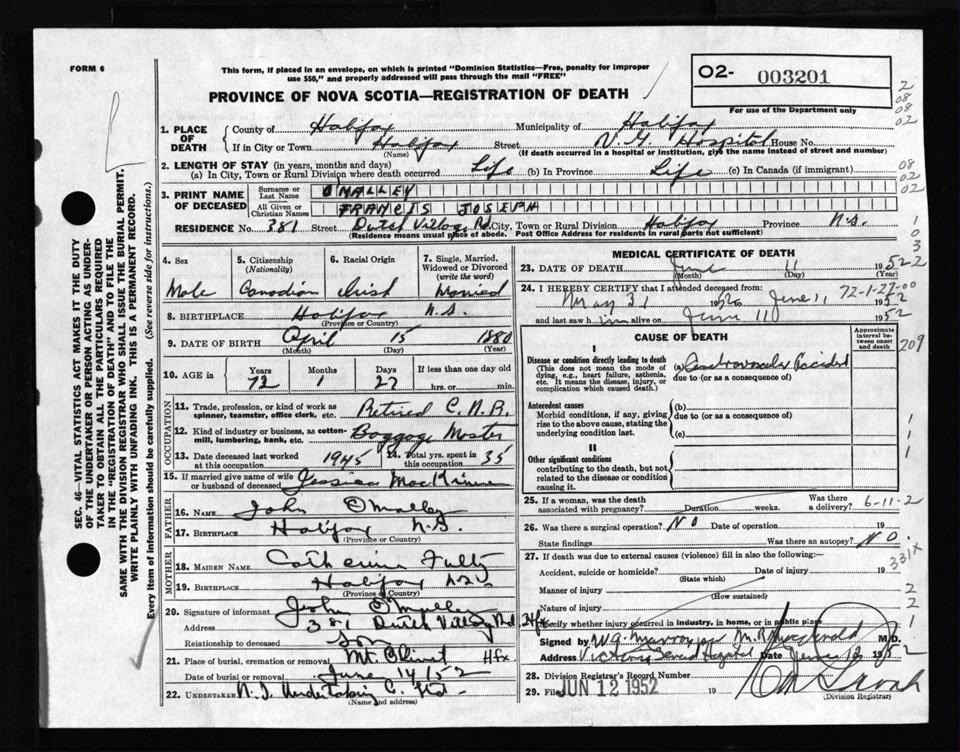 FORM 6
This form, if placed in an envelope, on which is printed "Dominion Statistics—Free, penalty for improper
use $50," and properly addressed will pass through the mail "FREE"
PROVINCE OF NOVA SCOTIA—REGISTRATION OF DEATH
02- 003201
For use of the Department only
2
08
08
02
1. PLACE OF DEATH
County of Halifax Municipality of Halifax
If in City or Town Halifax Street V. G. Hospital House No.
(Name) (If death occurred in a hospital or institution, give the name instead of street and number)
2. LENGTH OF STAY (in years, months and days)
(a) In City, Town or Rural Division where death occurred Life (b) In Province Life (c) In Canada (if immigrant)
08
02
02
3. PRINT NAME OF DECEASED
Surname or Last Name O'MALLEY
All Given or Christian Names FRANCIS JOSEPH
RESIDENCE No. 381 Street Dutch Village Rd. City, Town or Rural Division Halifax Province N.S.
(Residence means usual place of abode. Post Office Address for residents in rural parts not sufficient)
1
0
3
4. Sex
Male
5. Citizenship
(Nationality)
Canadian
6. Racial Origin
Irish
7. Single, Married, Widowed or Divorced
(write the word)
Married
8. BIRTHPLACE Halifax N.S.
(Province or Country)
9. DATE OF BIRTH April 15 1880
(Month) (Day) (Year)
10. AGE in
Years Months Days If less than one day old
72 1 27 hrs. or min.
OCCUPATION
11. Trade, profession, or kind of work as
spinner, teamster, office clerk, etc. Retired C.N.R.
12. Kind of industry or business, as cotton-
mill, lumbering, bank, etc. Baggage Master
13. Date deceased last worked
at this occupation 1945
14. Total yrs. spent in
this occupation 35
15. If married give name of wife
or husband of deceased Jessica
FATHER
16. Name John O'Malley
17. Birthplace Halifax N.S.
(Province or Country)
MOTHER
18. MAIDEN NAME Catherine Fultz
19. BIRTHPLACE Halifax N.S.
(Province or Country)
20. Signature of informant John O'Malley
Address 381 Dutch Village Rd. Hfx
Relationship to deceased Son
21. Place of burial, cremation or removal Mt. Olivet Hfx
Date of burial or removal June 14/52
22. UNDERTAKER N.S. Undertaking C. Ltd.
(Name and address)
MEDICAL CERTIFICATE OF DEATH
23. DATE OF DEATH June 11 1952
(Month) (Day)
24. I HEREBY CERTIFY that I attended deceased from:
72-1-27-00
May 31 1952 to June 11 1952
and last saw him alive on June 11 1952
CAUSE OF DEATH
Approximate interval between onset and death
209
I
Disease or condition directly leading to death
(This does not mean the mode of
dying, e.g., heart failure, asthenia,
etc. It means the disease, injury, or
complication which caused death.)
(a) Cerebrovascular Accident
due to (or as a consequence of)
Antecedent causes
Morbid conditions, if any, giving
rise to the above cause, stating the
underlying condition last.
(b)
due to (or as a consequence of)
(c)
II
Other significant conditions
contributing to the death, but not
related to the disease or condition
causing it.
1
1
1
25. If a woman, was the death
associated with pregnancy? Duration weeks. Was there a delivery?
6-11-2
26. Was there a surgical operation? NO Date of operation 19
State findings Was there an autopsy? NO
331X
27. If death was due to external causes (violence) fill in also the following:—
Accident, suicide or homicide? Date of injury 19
(State which)
Manner of injury
(How sustained)
Nature of injury
Specify whether injury occurred in industry, in home, or in public place
2
2
1
Signed by W.A. Murray M.D.
Address Victoria General Hospital Date June 12 1952
28. Division Registrar's Record Number
29. Filed JUN 12 1952 19
(Division Registrar)
SEC. 46—VITAL STATISTICS ACT MAKES IT THE DUTY
OF THE UNDERTAKER OR PERSON ACTING AS UNDER-
TAKER TO OBTAIN ALL THE PARTICULARS REQUIRED
IN THE "REGISTRATION OF DEATH" AND TO FILE THE
SAME WITH THE DIVISION REGISTRAR WHO SHALL ISSUE THE BURIAL PERMIT.
WRITE PLAINLY WITH UNFADING INK. THIS IS A PERMANENT RECORD.
Every item of information should be carefully supplied. (See reverse side for instructions.)